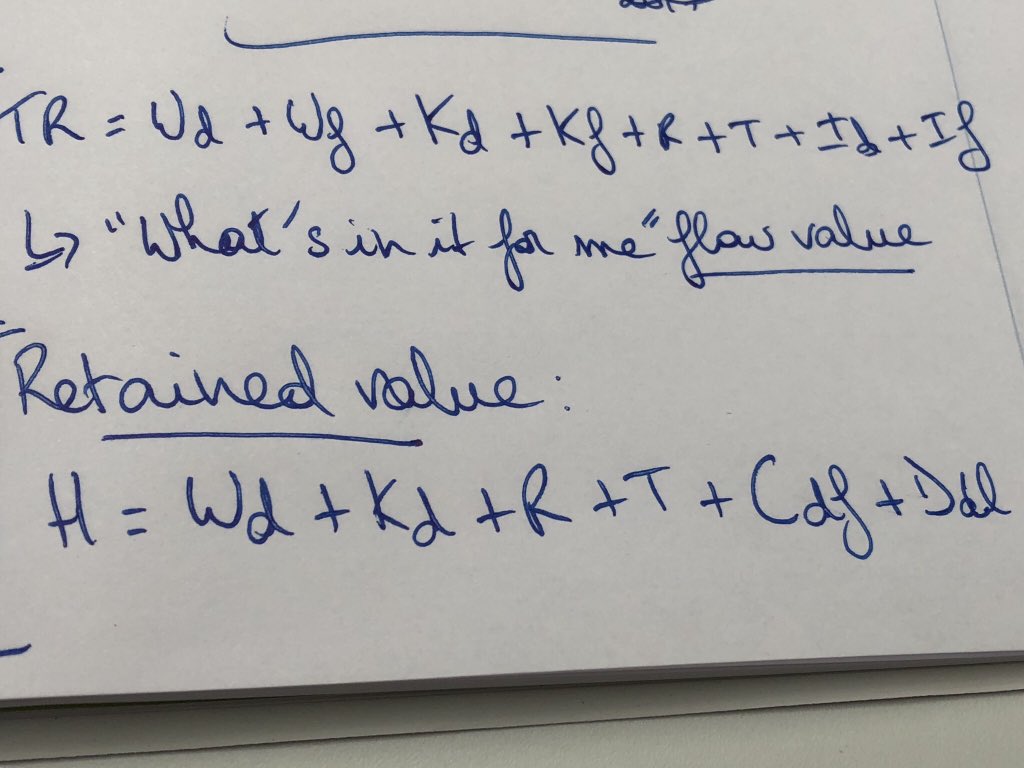 TR = Wd + Wf + Kd + Kf + R + T + Id + If
↳ "What's in it for me" flow value
Retained value:
H = Wd + Kd + R + T + Cdf + Ddd